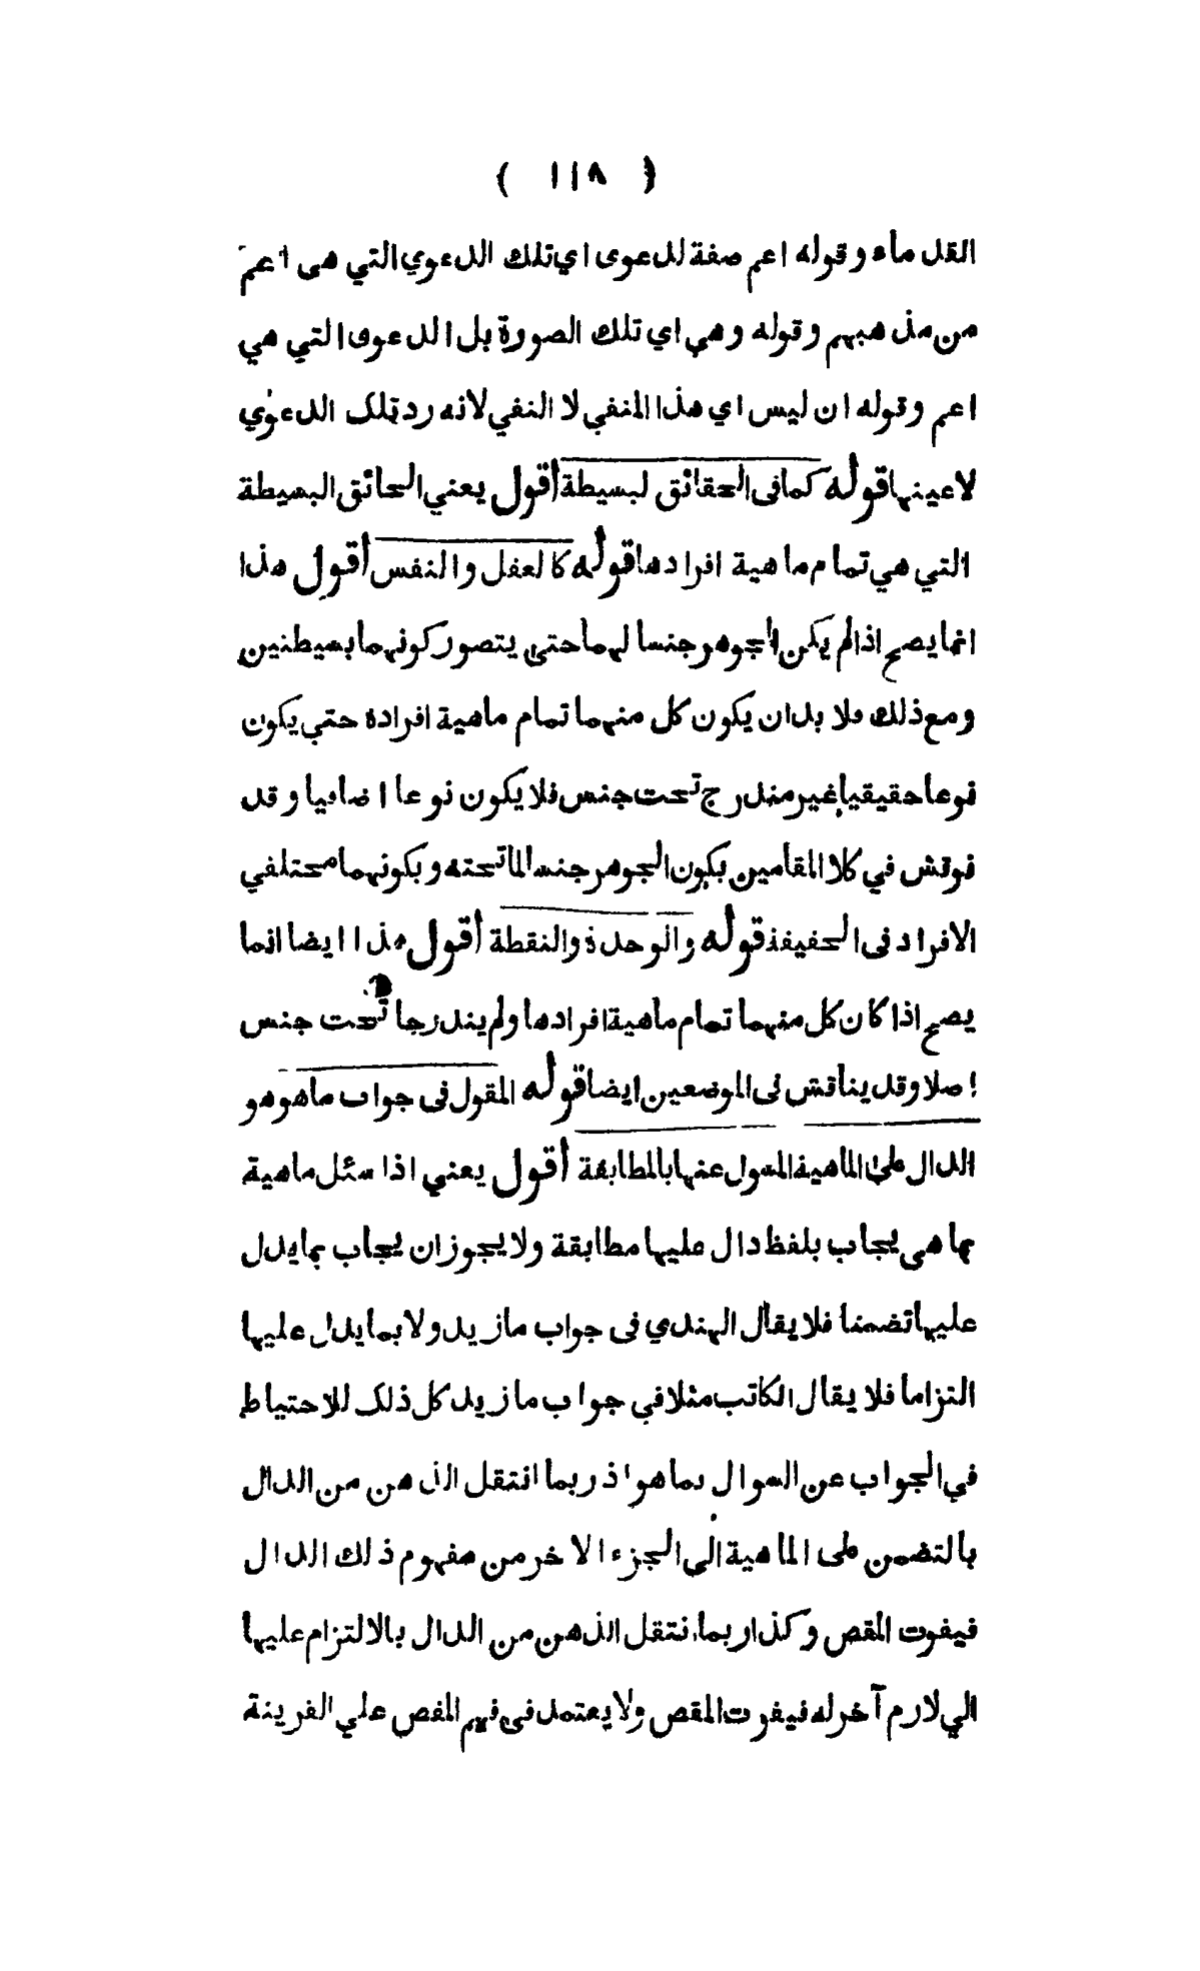 ( ١١٨ )
القدماء وقوله اعم صفة للدعوى اي تلك الدعوي التي هى اعم
من مذهبهم وقوله وهي اي تلك الصورة بل الدعوى التي هي
اعم وقوله ان ليس اي هذا المنفي لا النفي لانه رد تلك الدعوي
لاعينها قوله كما فى الحقائق لبسيطة أقول يعني الحائق البسيطة
التي هي تمام ماهية افرادها قوله كالعقل والنفس أقول هذا
انما يصح اذا لم يكن الجوهر جنسا لهما حتى يتصور كونهما بسيطتين
ومع ذلك فلا بد ان يكون كل منهما تمام ماهية افراده حتي يكون
نوعا حقيقيا غير مندرج تحت جنس فلا يكون نوعا اضافيا وقد
نوقش في كلا المقامين بكون الجوهر جنسا لما تحته وبكونهما مختلفي
الافراد فى الحقيقة قوله والوحدة والنقطة أقول هذا ايضا انما
يصح اذا كان كل منهما تمام ماهية افرادها ولم يندرجا تحت جنس
اصلا وقد يناقش فى الموضعين ايضا قوله المقول فى جواب ماهو هو
الدال على الماهية المسول عنها بالمطابقة أقول يعني اذا سئل ماهية
بما هى يجاب بلفظ دال عليها مطابقة ولا يجوز ان يجاب بما يدل
عليها تضمنا فلا يقال الهندي فى جواب ما زيد ولا بما يدل عليها
التزاما فلا يقال الكاتب مثلا في جواب ما زيد كل ذلك للاحتياط
في الجواب عن السوال بما هو اذ ربما انتقل الذهن من الدال
بالتضمن على الماهية الى الجزء الاخر من مفهوم ذلك الدال
فيفوت المقص وكذا ربما انتقل الذهن من الدال بالالتزام عليها
الي لازم آخر له فيفوت المقص ولا يعتمد فى فهم المقص علي القرينة